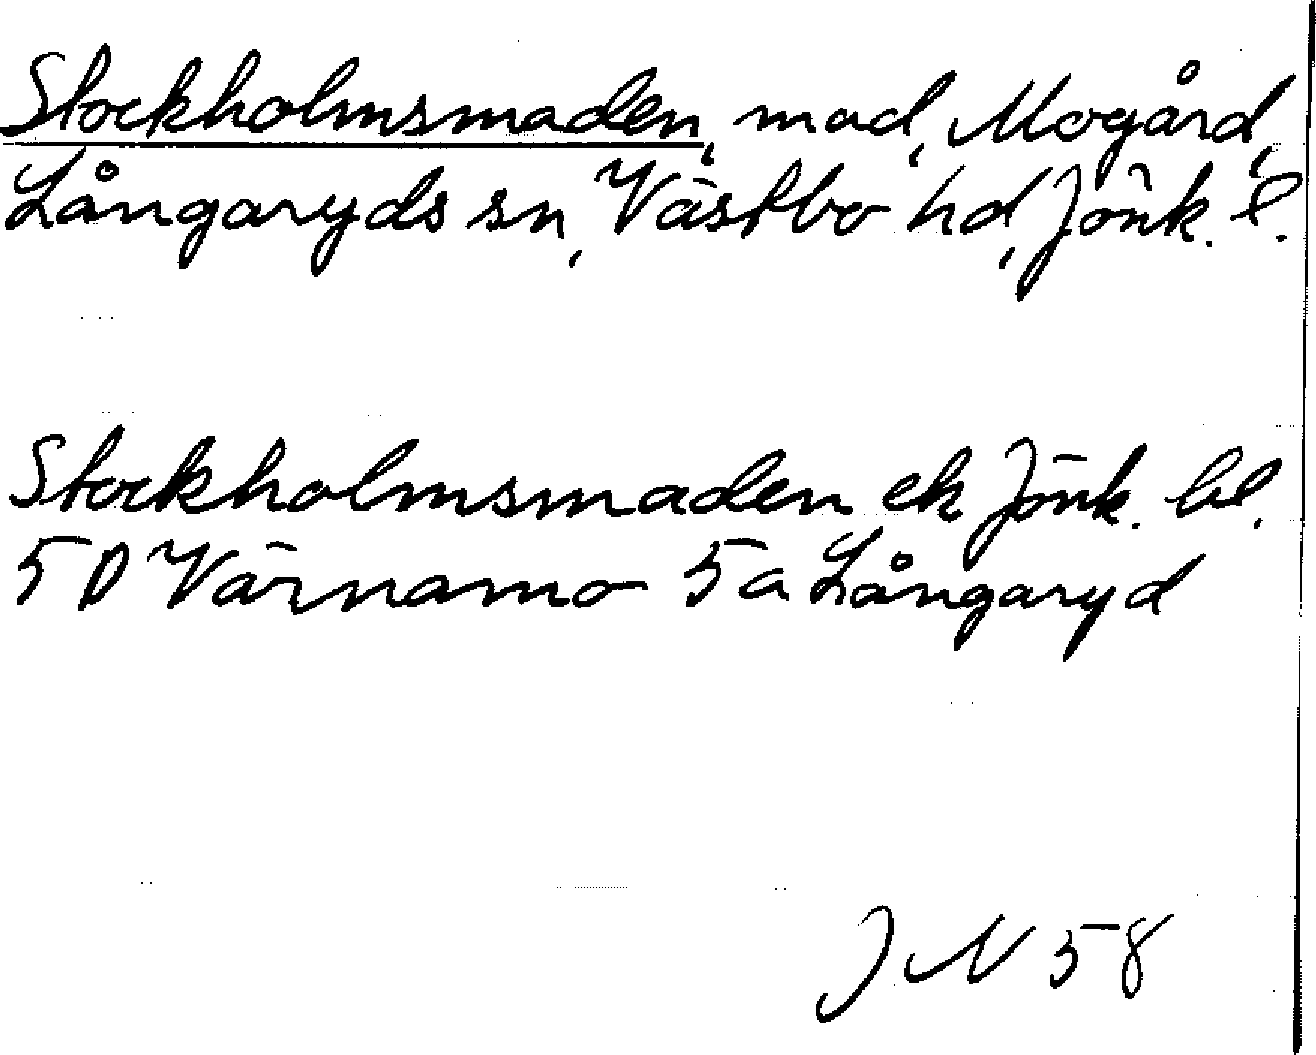 Stockholmsmaden, mad, Mogård,
Långaryds sn, Västbo hd, Jönk. l.
Stockholmsmaden ek Jönk. bl.
5 D Värnamo 5 a Långaryd
J N 58